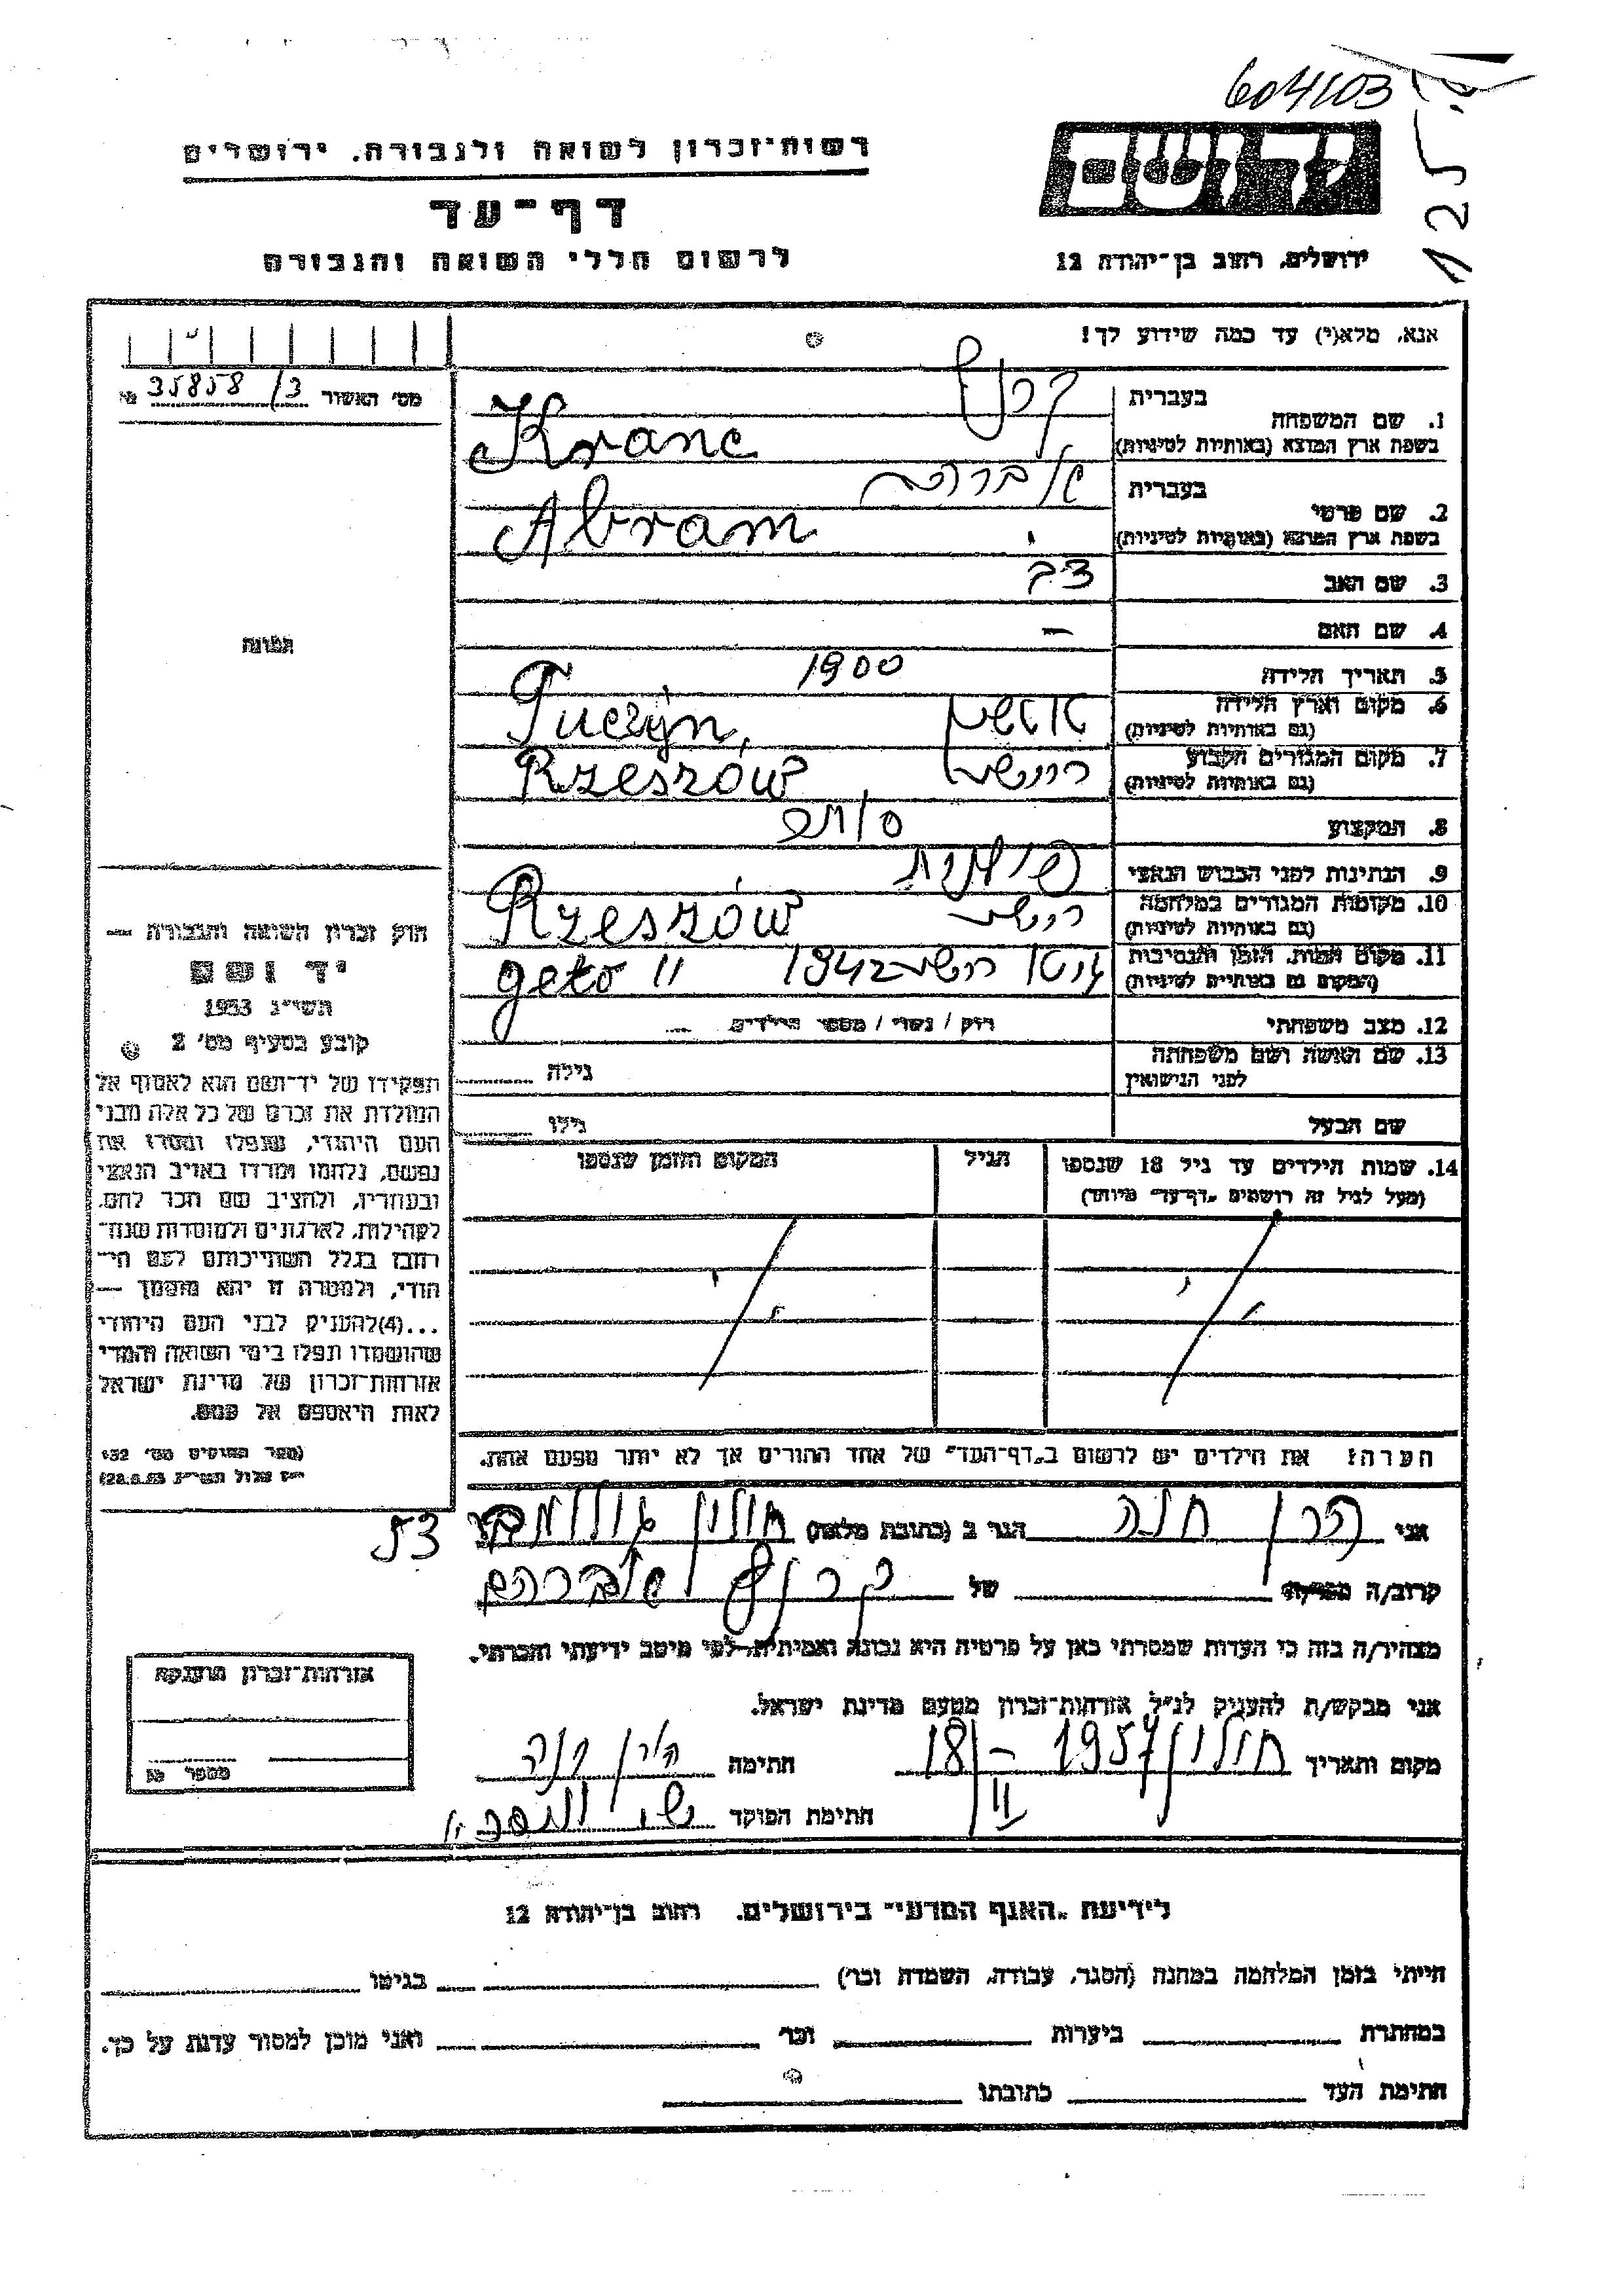 604103
125
רשות־זכרון לשואה ולגבורה. ירושלים
דף־עד
לרשום חללי השואה והגבורה
ידושם
ירושלים, רחוב בן־יהודה 12
אנא, מלא(י) עד כמה שידוע לך!
מס׳ האשור 35858/3
1. שם המשפחה
בעברית קרנץ
בשפת ארץ המוצא (באותיות לטיניות) Kranc
2. שם פרטי
בעברית אברהם
בשפת ארץ המוצא (באותיות לטיניות) Abram
3. שם האב צבי
4. שם האם —
5. תאריך הלידה 1900
6. מקום וארץ הלידה
(גם באותיות לטיניות) Tuczyn,
7. מקום המגורים הקבוע
(גם באותיות לטיניות) Rzeszów
8. המקצוע סוחר
9. הנתינות לפני הכבוש הנאצי פולנית
10. מקומות המגורים במלחמה
(גם באותיות לטיניות) Rzeszów
11. מקום המות, הזמן והנסיבות
(המקום גם באותיות לטיניות) 1942 geto II
12. מצב משפחתי רווק / נשוי / מספר הילדים
13. שם האשה ושם משפחתה
לפני הנישואין
גילה
שם הבעל גילו
14. שמות הילדים עד גיל 18 שנספו
(מעל לגיל זה רושמים "דף־עד" מיוחד)
הגיל
המקום והזמן שנספו
הערה: את הילדים יש לרשום ב"דף־העד" של אחד ההורים אך לא יותר מפעם אחת.
תמונה
חוק זכרון השואה והגבורה —
יד ושם
תשי״ג 1953
קובע בסעיף מס׳ 2
תפקידו של יד־ושם הוא לאסוף אל
המולדת את זכרם של כל אלה מבני
העם היהודי, שנפלו ומסרו את
נפשם, נלחמו ומרדו באויב הנאצי
ובעוזריו, ולהציב שם וזכר להם,
לקהילות, לארגונים ולמוסדות שנח־
רבו בגלל השתייכותם לעם הי־
הודי, ולמטרה זו יהא מוסמך —
...(4) להעניק לבני העם היהודי
שהושמדו ונפלו בימי השואה והמרי
אזרחות־זכרון של מדינת ישראל
לאות היאספם אל עמם.
(ספר החוקים מס׳ 132
י״ז אלול תשי״ג 28.8.53)
אני חנה הגר ב (כתובת מלאה) חולון 53
קרוב/ה מכר/ה של קרנץ אברהם
מצהיר/ה בזה כי העדות שמסרתי כאן על פרטיה היא נכונה ואמיתית, לפי מיטב ידיעתי והכרתי.
אני מבקש/ת להעניק לנ״ל אזרחות־זכרון מטעם מדינת ישראל.
מקום ותאריך חולון 18/II – 1957 חתימה חנה
חתימת הפוקד
אזרחות־זכרון מוענקת
מספר
לידיעת "האגף המדעי" בירושלים, רחוב בן־יהודה 12
הייתי בזמן המלחמה במחנה (הסגר, עבודה, השמדה וכו׳) בגיטו
במחתרת ביערות וכו׳ ואני מוכן למסור עדות על כך.
חתימת העד כתובתו